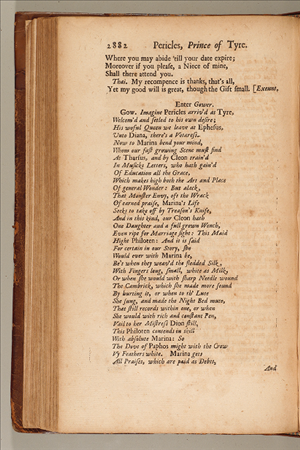 2882 Pericles, Prince of Tyre.
Where you may abide 'till your date expire;
Moreover if you please, a Niece of mine,
Shall there attend you.
Thai. My recompence is thanks, that's all,
Yet my good will is great, though the Gift small. [Exeunt.
Enter Gower.
Gow. Imagine Pericles arriv'd at Tyre,
Welcom'd and setled to his own desire;
His woful Queen we leave at Ephesus,
Unto Diana, there's a Votaress.
Now to Marina bend your mind,
Whom our fast growing Scene must find
At Tharsus, and by Cleon train'd
In Musicks Letters, who hath gain'd
Of Education all the Grace,
Which makes high both the Art and Place
Of general Wonder: But alack,
That Monster Envy, oft the Wrack
Of earned praise, Marina's Life
Seeks to take off by Treason's Knife,
And in this kind, our Cleon hath
One Daughter and a full grown Wench,
Even ripe for Marriage sight: This Maid
Hight Philoten: And it is said
For certain in our Story, she
Would ever with Marina be,
Be't when they weav'd the sledded Silk,
With Fingers long, small, white as Milk,
Or when she would with sharp Needle wound
The Cambrick, which she made more sound
By hurting it, or when to th' Lute
She sung, and made the Night Bed mute,
That still records within one, or when
She would with rich and constant Pen,
Vail to her Mistress Dion still,
This Philoten contends in skill
With absolute Marina: So
The Dove of Paphos might with the Crow
Vy Feathers white. Marina gets
All Praises, which are paid as Debts,
And